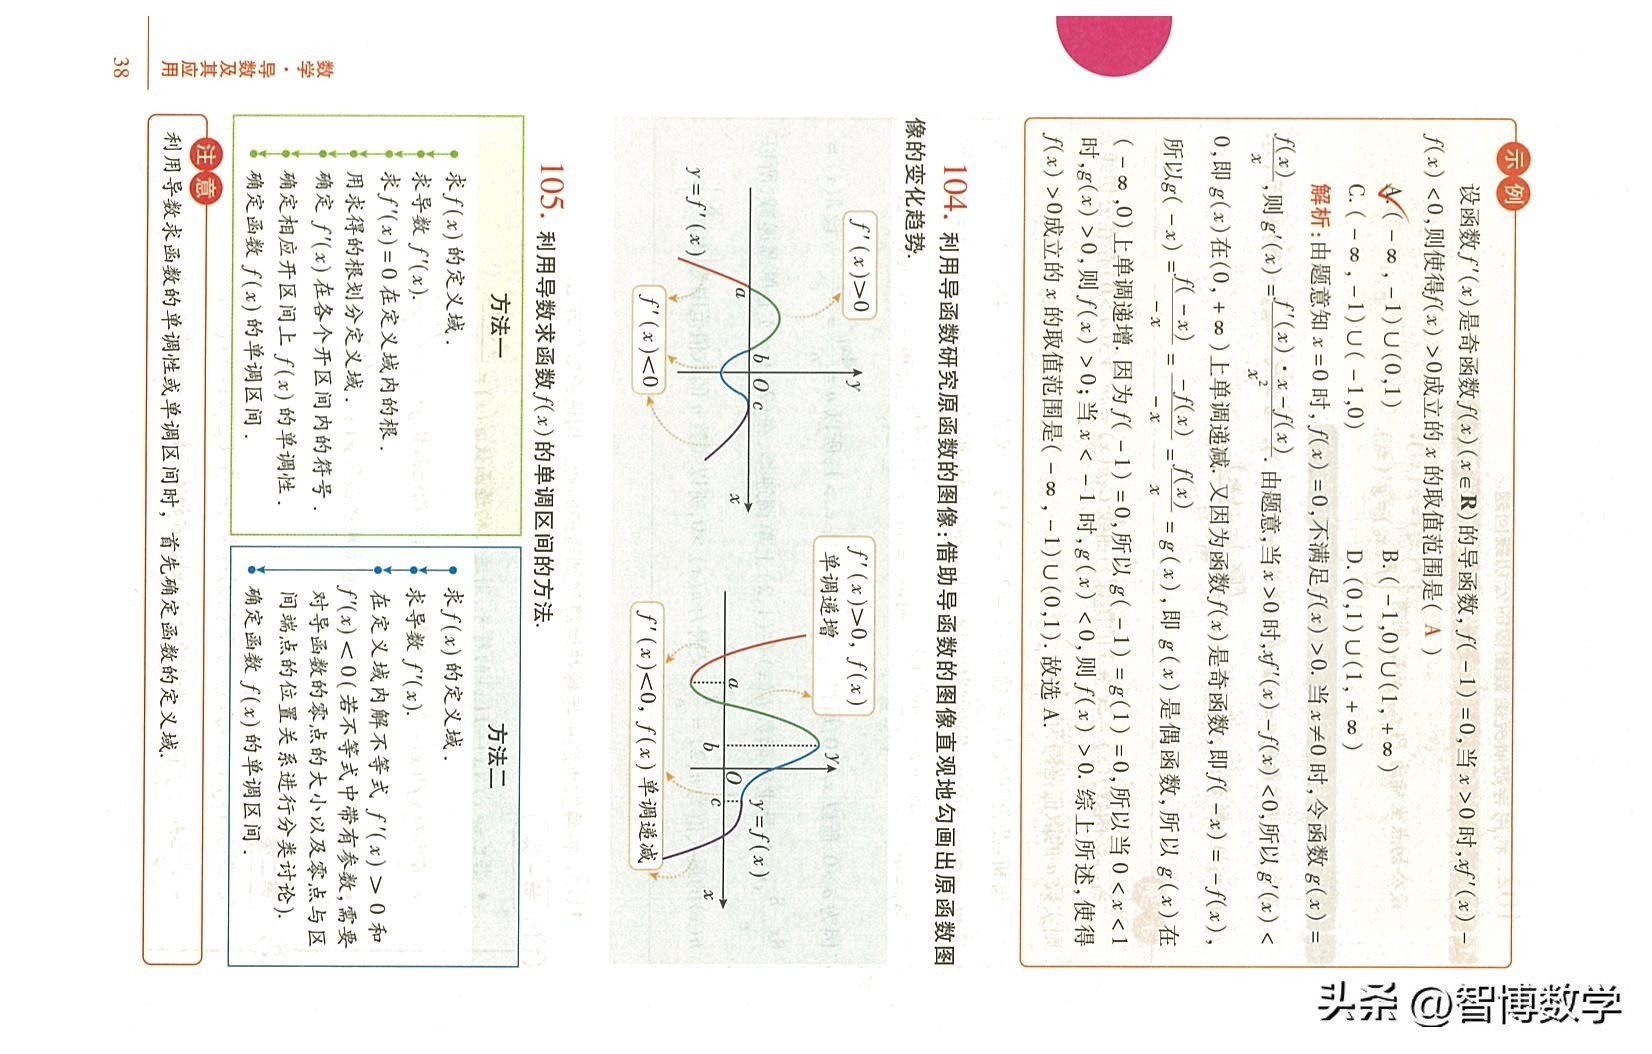 示例
设函数f′(x)是奇函数f(x)(x∈R)的导函数,f(-1)=0,当x>0时,xf′(x)-
f(x)<0,则使得f(x)>0成立的x的取值范围是( A )
A.(-∞,-1)∪(0,1)　B.(-1,0)∪(1,+∞)
C.(-∞,-1)∪(-1,0)　D.(0,1)∪(1,+∞)
解析:由题意知x=0时,f(x)=0,不满足f(x)>0.当x≠0时,令函数g(x)=
f(x)/x,则g′(x)=f′(x)·x-f(x)/x².由题意,当x>0时,xf′(x)-f(x)<0,所以g′(x)<
0,即g(x)在(0,+∞)上单调递减.又因为函数f(x)是奇函数,即f(-x)=-f(x),
所以g(-x)=f(-x)/-x=-f(x)/-x=f(x)/x=g(x),即g(x)是偶函数,所以g(x)在
(-∞,0)上单调递增.因为f(-1)=0,所以g(-1)=g(1)=0,所以当0<x<1
时,g(x)>0,则f(x)>0;当x<-1时,g(x)<0,则f(x)>0.综上所述,使得
f(x)>0成立的x的取值范围是(-∞,-1)∪(0,1).故选A.
104.利用导函数研究原函数的图像:借助导函数的图像直观地勾画出原函数图
像的变化趋势.
f′(x)>0
y
a
b
O
c
x
y=f′(x)
f′(x)<0
f′(x)>0,f(x)
单调递增
y
a
b
O
c
y=f(x)
x
f′(x)<0,f(x)单调递减
105.利用导数求函数f(x)的单调区间的方法.
方法一
求f(x)的定义域.
求导数f′(x).
求f′(x)=0在定义域内的根.
用求得的根划分定义域.
确定f′(x)在各个开区间内的符号.
确定相应开区间上f(x)的单调性.
确定函数f(x)的单调区间.
方法二
求f(x)的定义域.
求导数f′(x).
在定义域内解不等式f′(x)>0和
f′(x)<0(若不等式中带有参数,需要
对导函数的零点的大小以及零点与区
间端点的位置关系进行分类讨论).
确定函数f(x)的单调区间.
注意
利用导数求函数的单调性或单调区间时,首先确定函数的定义域.
数学·导数及其应用
38
头条 @智博数学